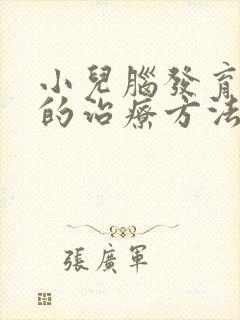 小兒腦發育
的治療方法
張廣軍